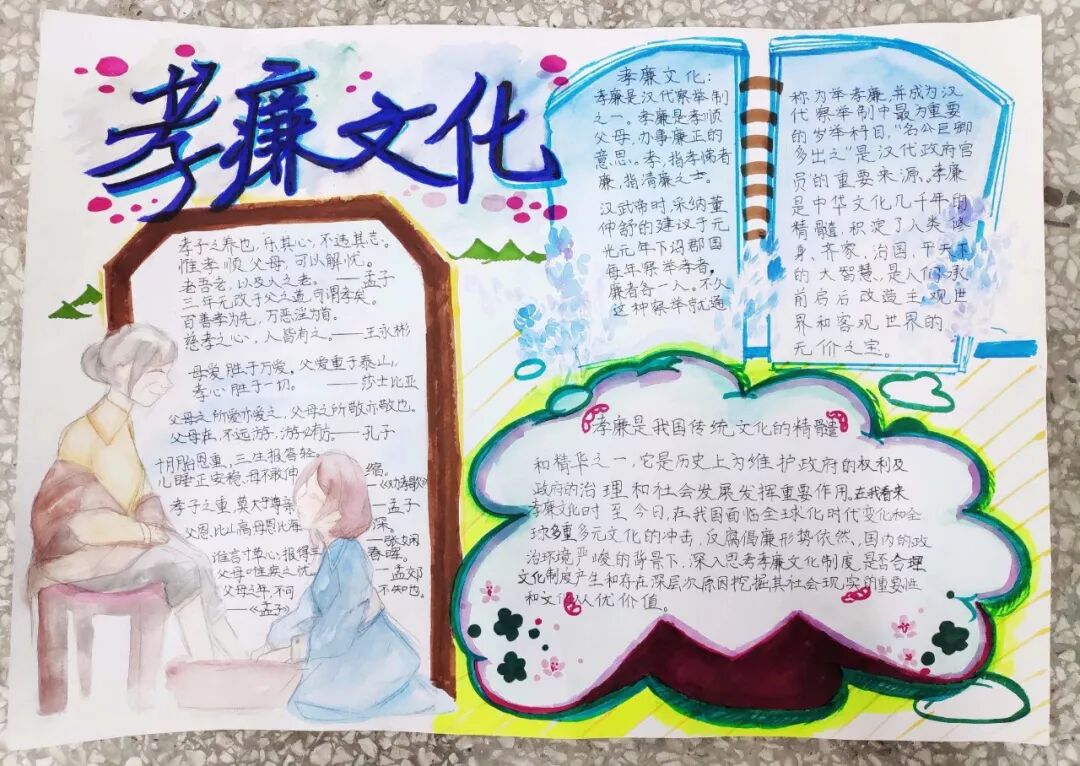 孝廉文化
孝子之养也，乐其心，不违其志。
惟孝顺父母，可以解忧。
老吾老，以及人之老。——孟子
三年无改于父之道，可谓孝矣。
百善孝为先，万恶淫为首。
慈孝之心，人皆有之。——王永彬
母爱胜于万爱，父爱重于泰山，
孝心胜于一切。——莎士比亚
父母之所爱亦爱之，父母之所敬亦敬也。
父母在，不远游，游必有方。——孔子
十月胎恩重，三生报答轻。
儿睡正安稳，母不敢伸 缩。
——《劝孝歌》
孝子之重，莫大乎尊亲 ——孟子
父恩比山高，母恩比海 深。
谁言寸草心，报得三 春晖。
父母唯疾之忧 ——孟郊
父母之年，不可 不知也。
——《孟子》
孝廉文化：
孝廉是汉代察举制
之一。孝廉是孝顺
父母，办事廉正的
意思。孝，指孝悌者
廉，指清廉之士。
汉武帝时采纳董
仲舒的建议于元
光元年下诏郡国
每年察举孝者，
廉者各一人。不久
这种察举就通
称为举孝廉，并成为汉
代察举制中最为重要
的岁举科目，“名公巨卿
多出之”是汉代政府官
员的重要来源。孝廉
是中华文化几千年的
精髓，积淀了人类修
身、齐家、治国、平天下
的大智慧，是人们承
前启后改造主观世
界和客观世界的
无价之宝。
孝廉是我国传统文化的精髓
和精华之一，它是历史上为维护政府的权利及
政府的治理和社会发展发挥重要作用。在我看来
孝廉文化时至今日，在我国面临全球化时代变化和全
球多重多元文化的冲击，反腐倡廉形势依然，国内的政
治环境严峻的背景下，深入思考孝廉文化制度，是否合理
文化制度产生和存在深层次原因挖掘其社会现实的重要性
和文化从优价值。